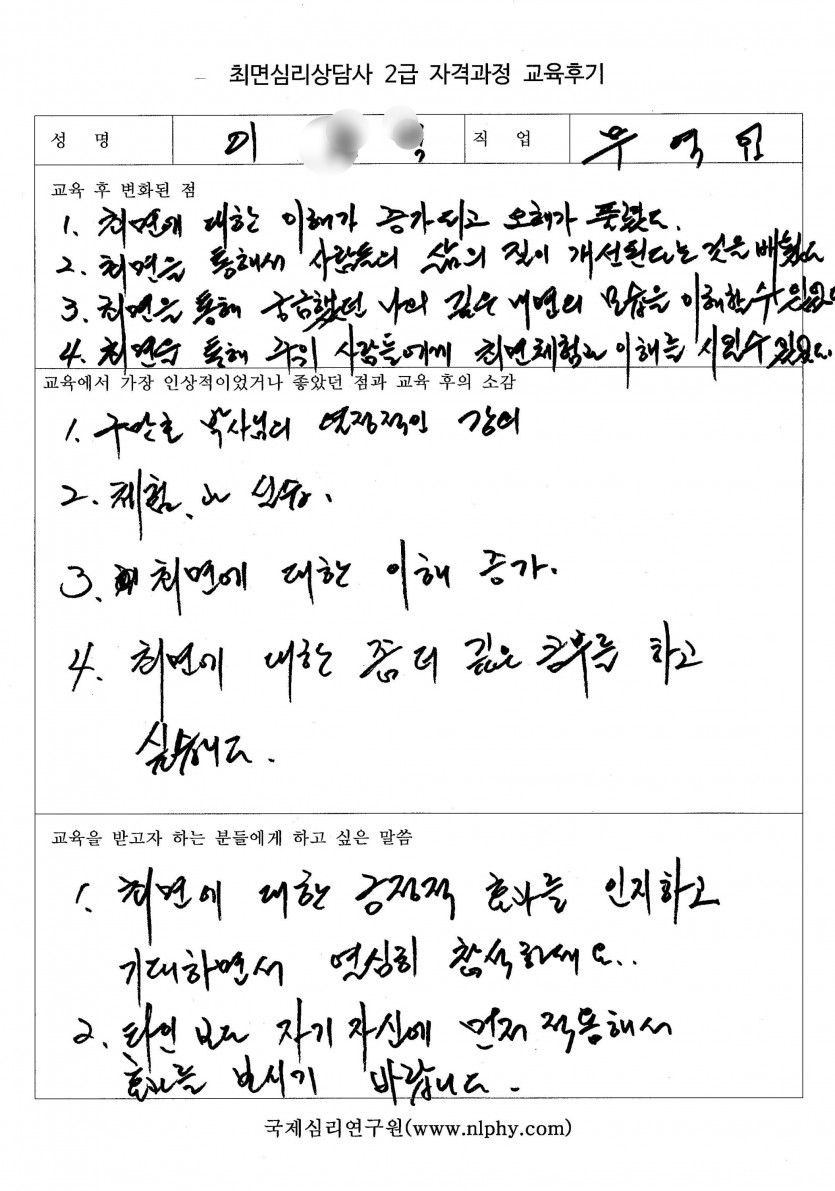 최면심리상담사 2급 자격과정 교육후기
성 명 이 직 업 무역인
교육 후 변화된 점
1. 최면에 대한 이해가 증가되고 오해가 풀렸다.
2. 최면을 통해서 사람들의 삶의 질이 개선된다는 것을 배웠다
3. 최면을 통해 궁금했던 나의 깊은 내면의 모습을 이해할 수 있었다
4. 최면을 통해 주위 사람들에게 최면체험과 이해를 시킬수 있었다.
교육에서 가장 인상적이었거나 좋았던 점과 교육 후의 소감
1. 구만호 박사님의 열정적인 강의
2. 체험과 실습.
3. 최면에 대한 이해 증가.
4. 최면에 대한 좀 더 깊은 공부를 하고
싶습니다.
교육을 받고자 하는 분들에게 하고 싶은 말씀
1. 최면에 대한 긍정적 효과를 인지하고
기대하면서 열심히 참석하세요..
2. 타인보다 자기 자신에 먼저 적용해서
효과를 보시기 바랍니다.
국제심리연구원(www.nlphy.com)